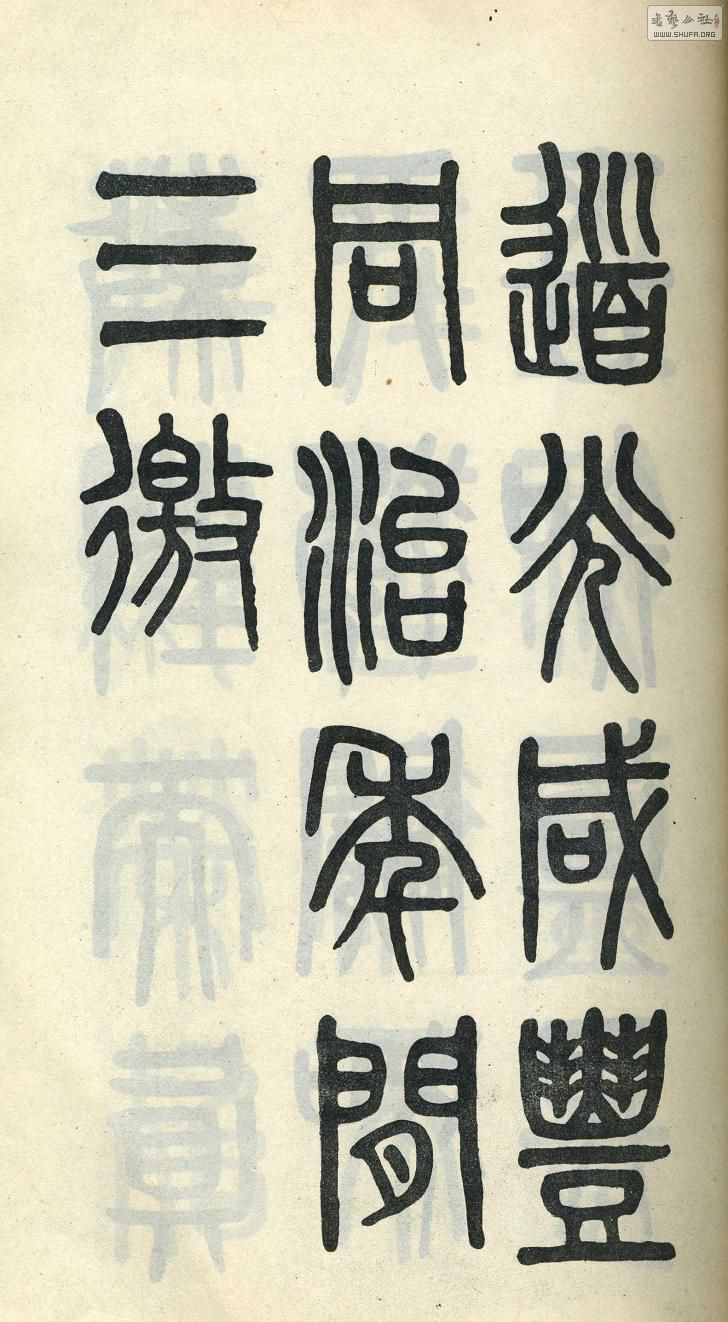 道光咸豐
同治年間
三徵
書藝公社
WWW.SHUFA.ORG